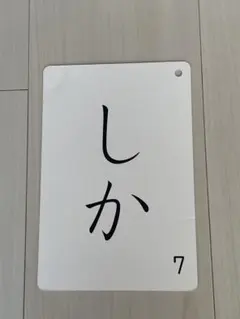 しか
7